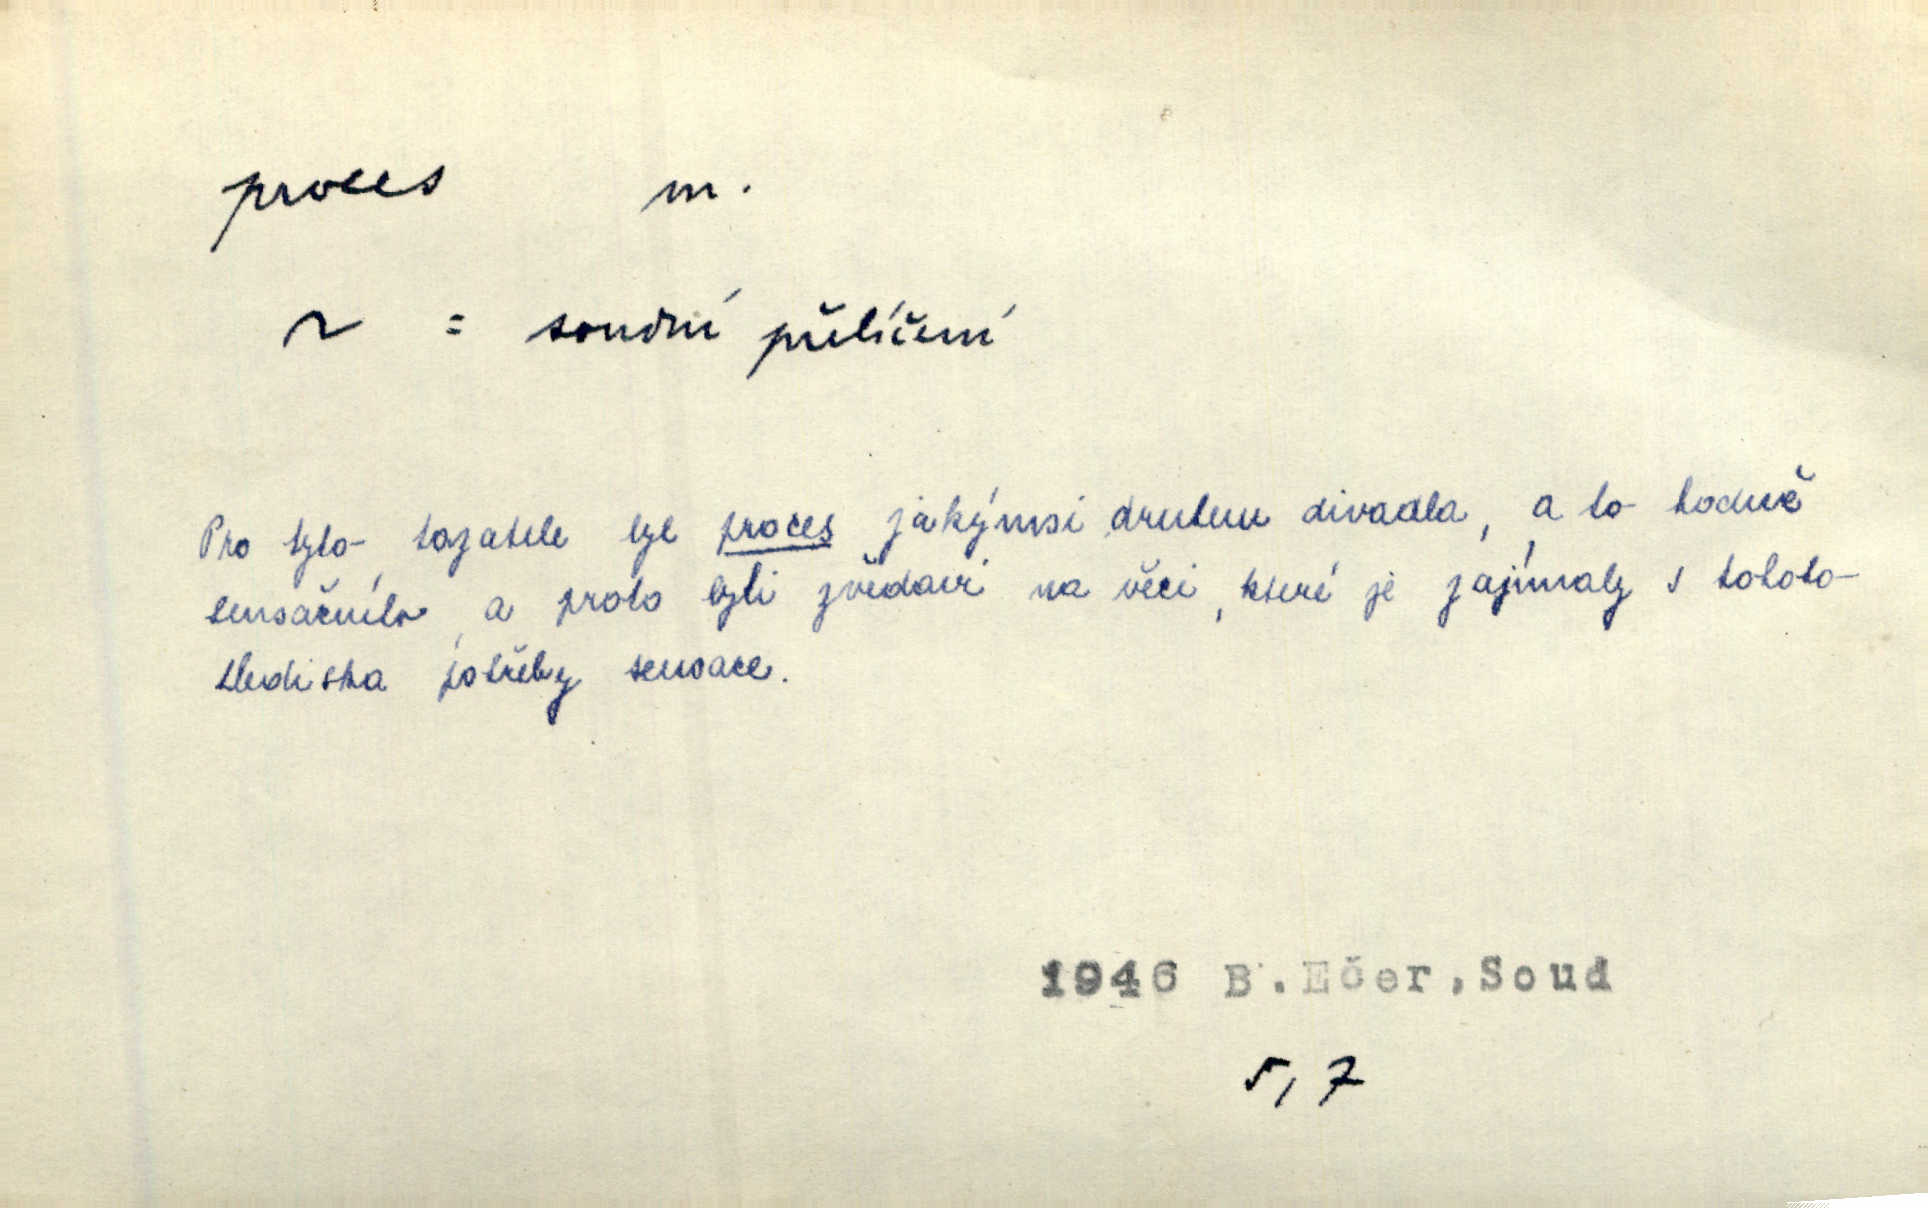 proces m.
~ = soudní přelíčení
Pro tyto tazatele byl proces jakýmsi druhem divadla, a to hodně
sensačního, a proto byli zvědavi na věci, které je zajímaly s tohoto
hlediska potřeby sensace.
1946 B. Ečer, Soud
5, 7